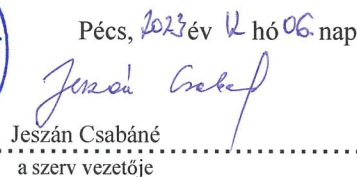 Pécs, 2023 év 12 hó 06. nap
Jeszán Csabáné
Jeszán Csabáné
a szerv vezetője